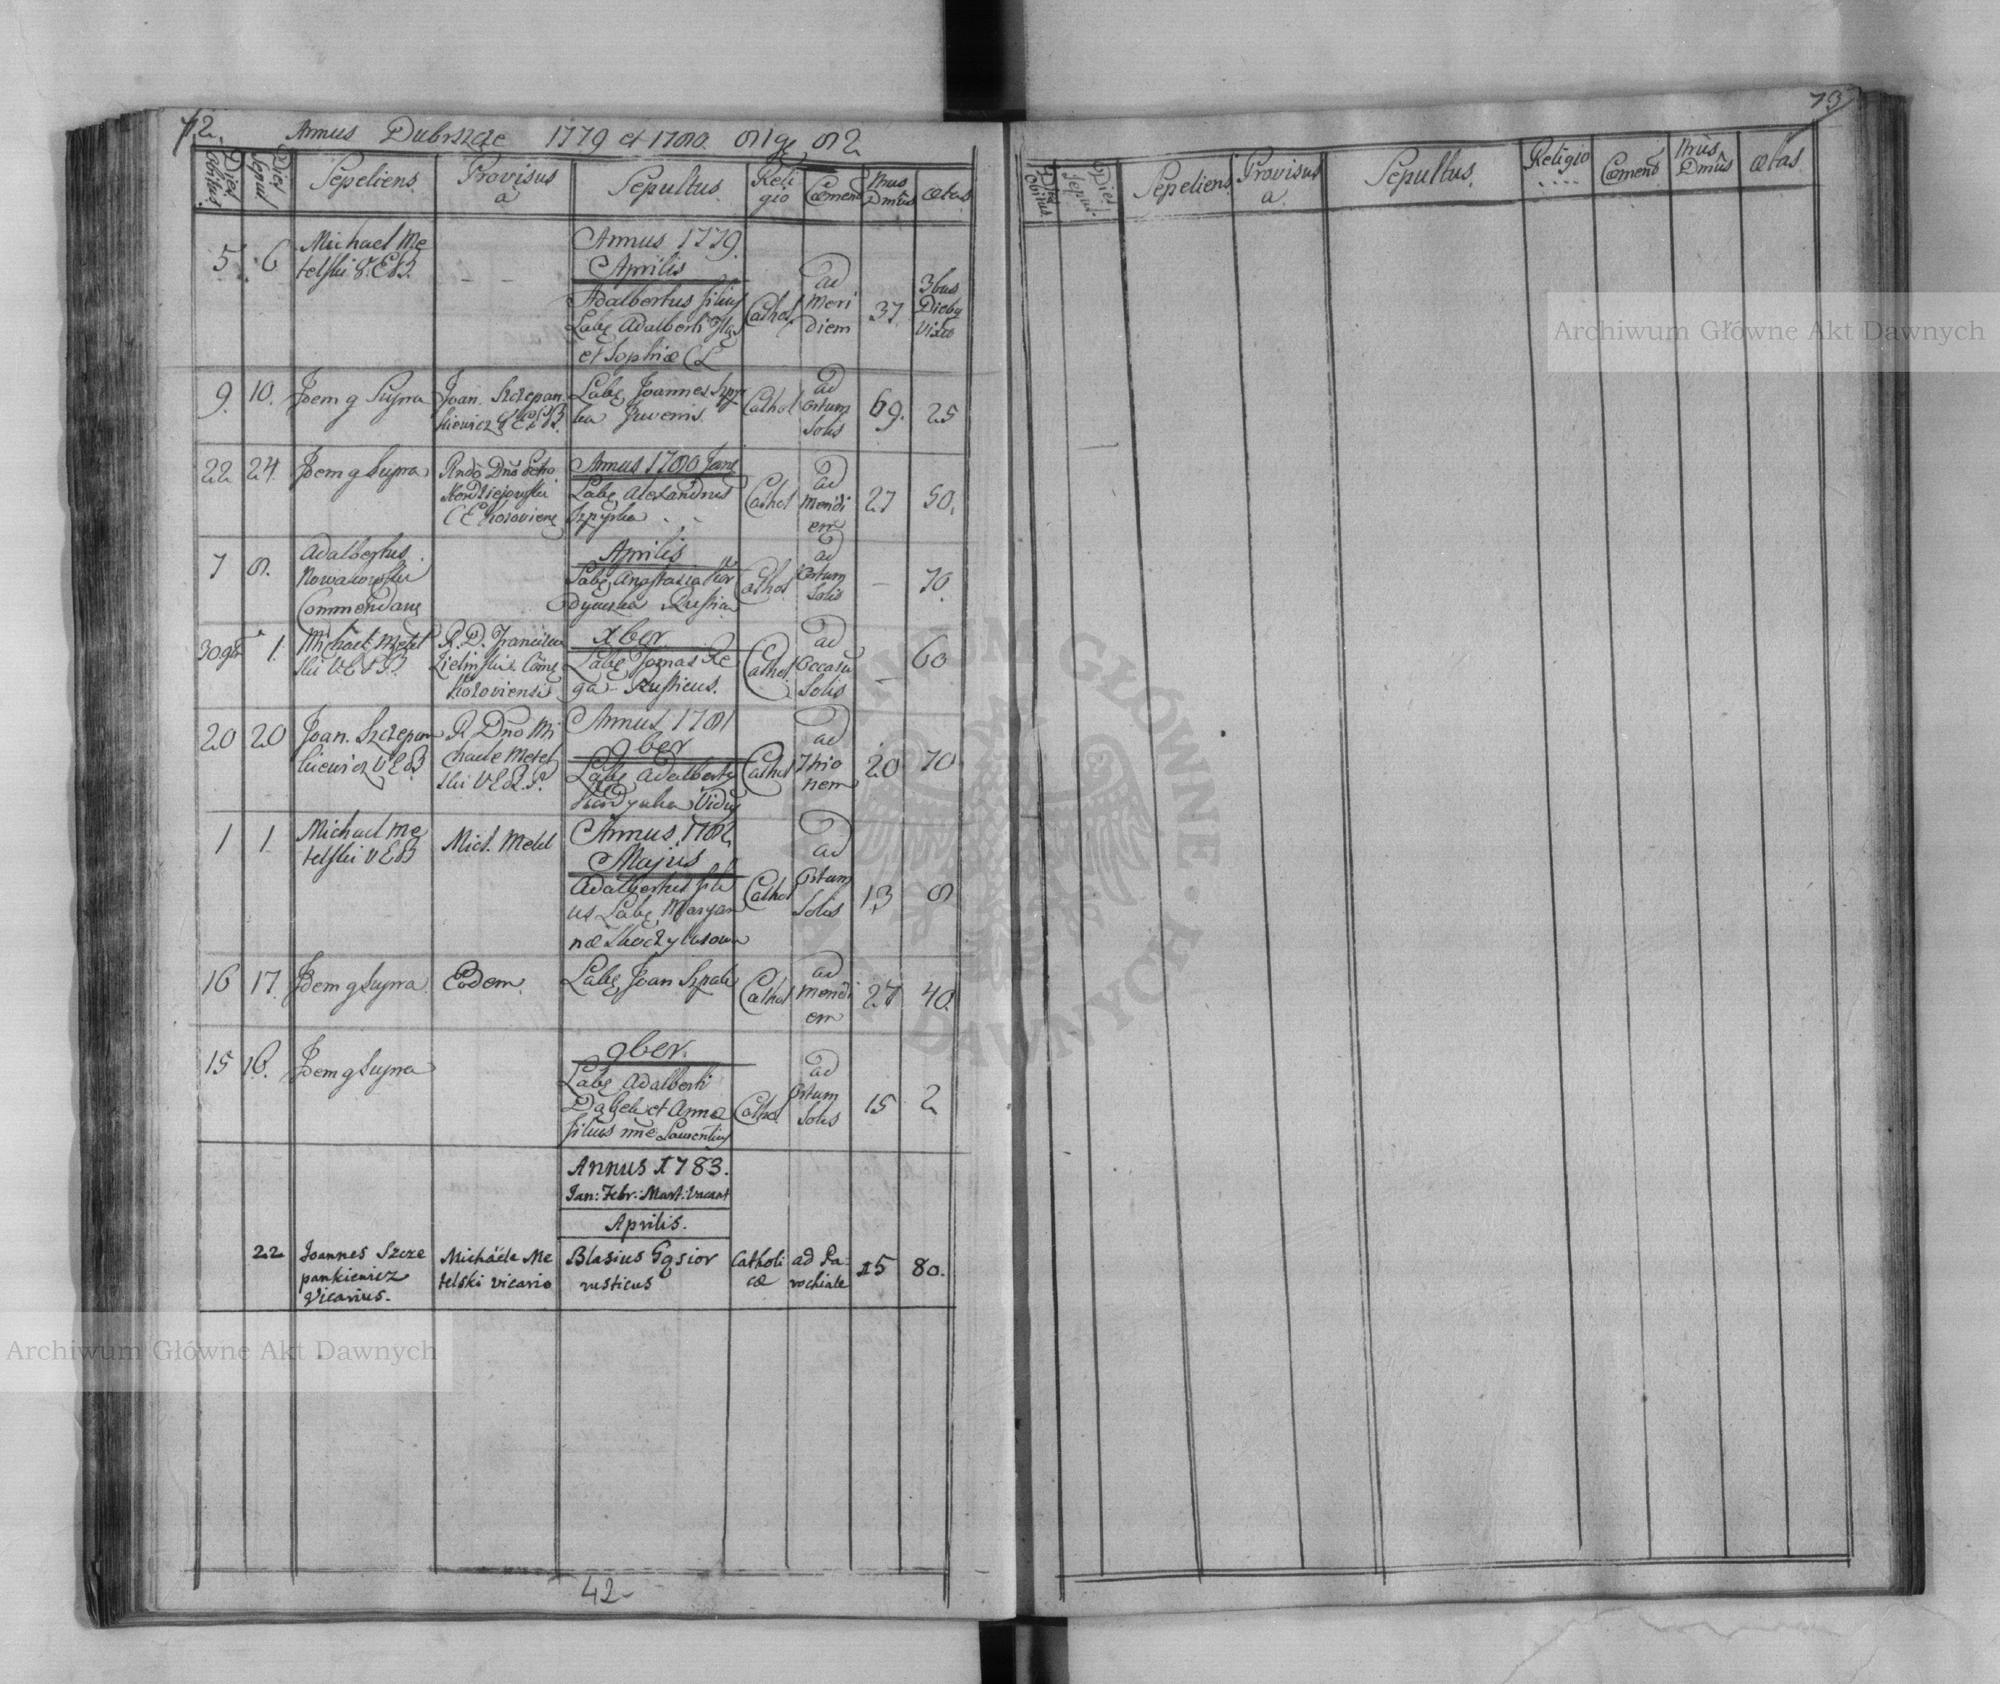 72.
Annus Dubrszcze 1779 et 1780. 81 et 82
Dies Obitus.
Dies Sepul
Sepeliens.
Provisus a
Sepultus.
Religio
Cœment
Nrus Dmûs
œtas
5 6
Michael Me
telski V. E B.
Annus 1779.
Aprilis
Adalbertus filius
Labę Adalberti
et Sophiœ C L
Cathol
ad
Meri
diem
37
3bus
Diebg
Vixit
9. 10.
Idem q Supra
Joan. Szczepan
kiewicz V E B.
Labę Joannes Szpy
ka Juvenis
Cathol
ad
Ortum
Solis
69.
25
22 24
Idem q Supra
Rndo Dno
Annus 1780 Janę
Labę Alexandrus
Szpyrka
Cathol
ad
Meridi
em
27
50.
7 8.
Adalbertus
Nowakowski
Commendarę
Aprilis
Labę Anastazia Kor
dycuska Rustica
Cathol
ad
Ortum
Solis
—
70.
30 9br 1.
Michael Metel
ski V E B.
R. D. Francisco
Zielinski Comę
Koroviensis
Xber
Labę Tomas Rę
ga - Rusticus.
Cathol
ad
Occasu
Solis
—
60
20 20
Joan. Szczepan
kiewicz V E B
R Dno Mi
chaele Metel
ski V E B. P.
Annus 1781
9ber
Labę Adalbertę
Kordyuka Viduę
Cathol
ad
Thio
nem
20
70
1 1
Michael Me
telski V E B
Mich. Metel
Annus 1782
Majus
Adalbertus fili
us Labę Maryan
nœ
Cathol
ad
Ortum
Solis
13
8
16 17.
Idem q Supra
Eodem.
Labę Joan Szpak
Cathol
ad
meridi
em
27
40.
15 16.
Idem q Supra
9ber.
Labę Adalberti
Dąbek et Annœ
filius nne Laurentius
Cathol
ad
Ortum
Solis
15
2
Annus 1783.
Jan: Febr: Mart: vacant
Aprilis.
22
Joannes Szcze
pankiewicz
Vicarius.
Michaële Me
telski vicario
Blasius Gąsior
rusticus
Catholi
cœ
ad Pa-
rochiale
15
80.
42
73
Dies Obitus
Dies Sepul.
Sepeliens
Provisus a.
Sepultus.
Religio
....
Cœment
Nrus Dmûs
œtas
Archiwum Główne Akt Dawnych
Archiwum Główne Akt Dawnych
ARCHIWUM GŁÓWNE AKT DAWNYCH